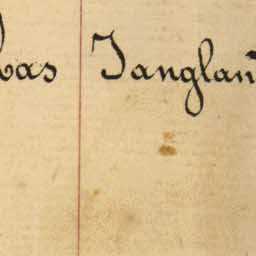 bas Janglan